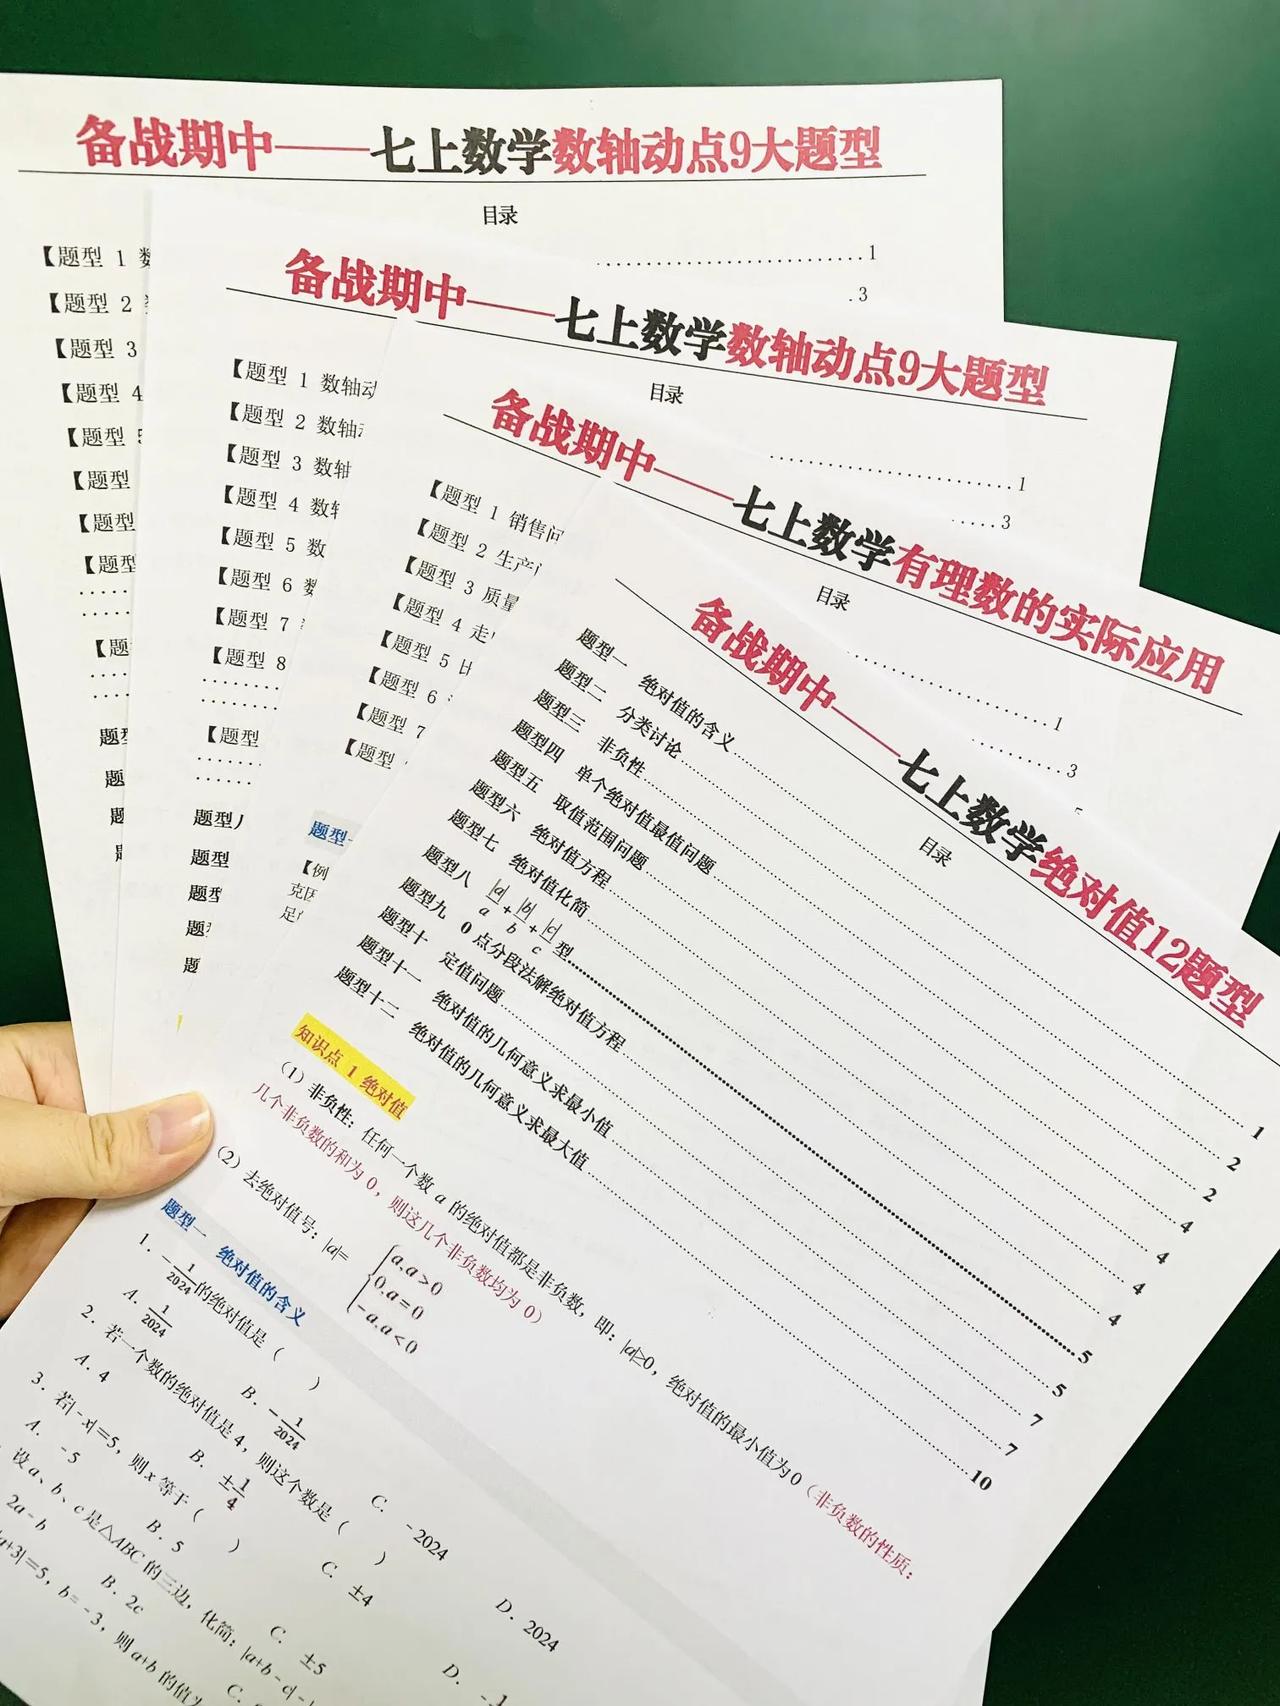 备战期中——七上数学数轴动点9大题型
目录
【题型 1 数
1
【题型 2
3
【题型 3
【题型 4
【题型 5
【题型
【题型
【题型
【题
题型
题
题
备战期中——七上数学数轴动点9大题型
目录
【题型 1 数轴动
1
【题型 2 数轴动
3
【题型 3 数轴
【题型 4 数轴
【题型 5 数
【题型 6 数
【题型 7
【题型 8
【题型
题型八
题型
题型
题
题
备战期中——七上数学有理数的实际应用
目录
【题型 1 销售问
1
【题型 2 生产
3
【题型 3 质量
【题型 4 走
【题型 5 比
【题型 6
【题型 7
【题型
题型一
【例
克因
足
备战期中——七上数学绝对值12题型
目录
题型一 绝对值的含义 1
题型二 分类讨论 2
题型三 非负性 2
题型四 单个绝对值最值问题 4
题型五 取值范围问题 4
题型六 绝对值方程 4
题型七 绝对值化简 4
题型八 |a|/a+|b|/b+|c|/c型 5
题型九 0点分段法解绝对值方程 5
题型十 定值问题 7
题型十一 绝对值的几何意义求最小值 7
题型十二 绝对值的几何意义求最大值 10
知识点 1 绝对值
(1) 非负性：任何一个数 a 的绝对值都是非负数，即：|a|≥0，绝对值的最小值为0（非负数的性质：
几个非负数的和为 0，则这几个非负数均为 0）
(2) 去绝对值号：|a|={a,a>0
0,a=0
-a,a<0
题型一 绝对值的含义
1. -1/2024的绝对值是（ ）
A. 1/2024 B. -1/2024 C. -2024 D. 2024
2. 若一个数的绝对值是 4，则这个数是（ ）
A. 4 B. ±1/4 C. ±4 D. -
3. 若|-x|=5，则 x 等于（ ）
A. -5 B. 5 C. ±5
设 a、b、c 是△ABC 的三边，化简：|a+b-c|-
2a-b B. 2c C.
a+3|=5，b=-3，则 a+b 的值为